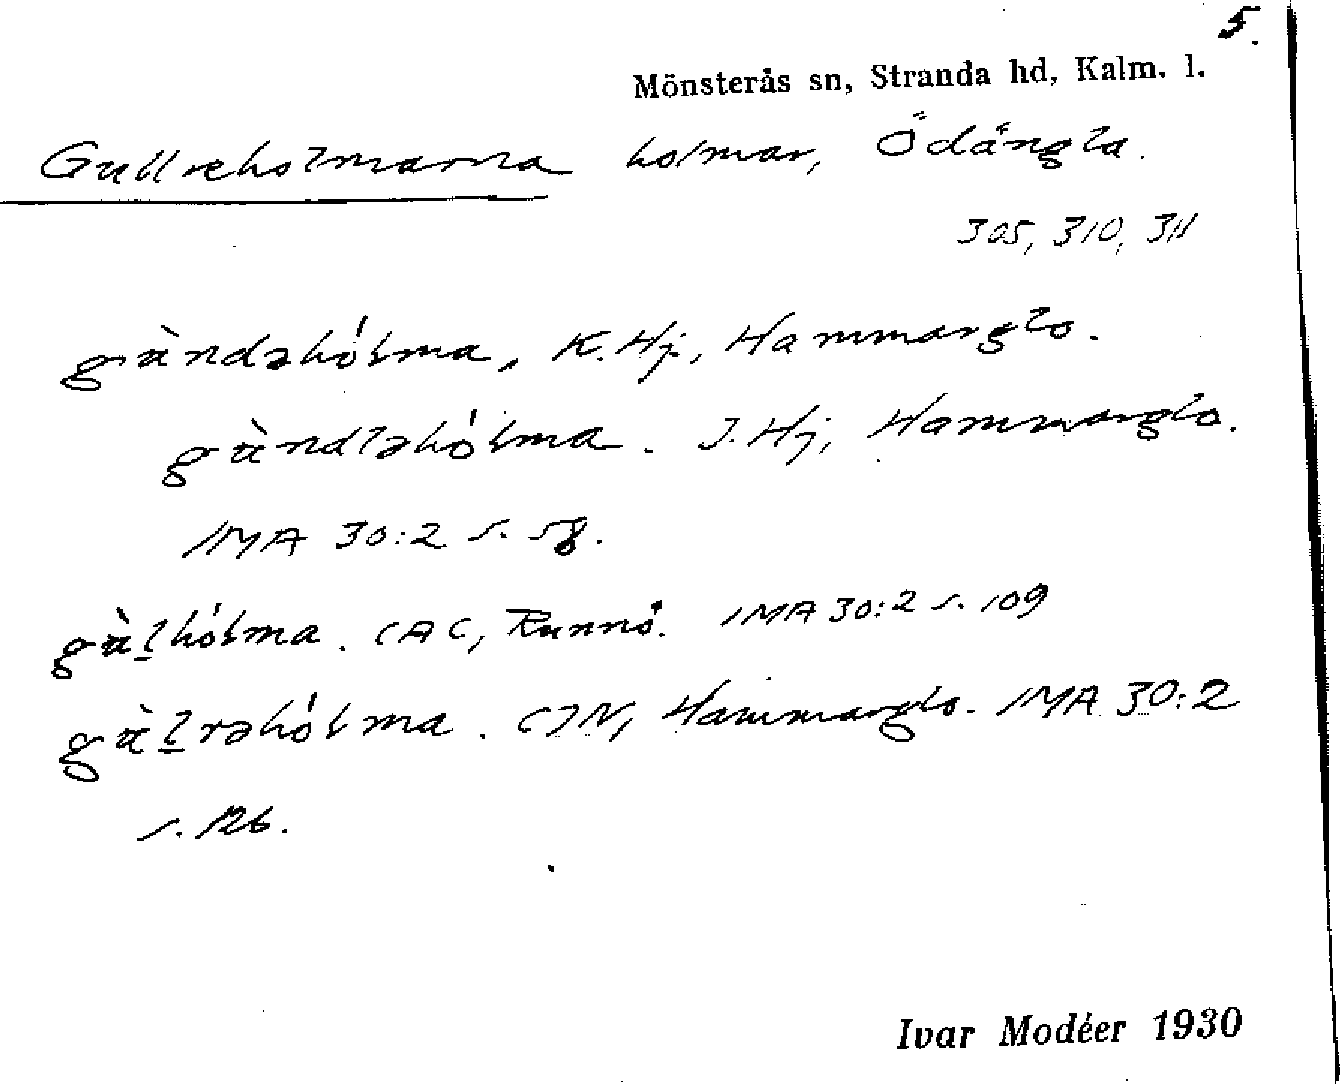 5.
Mönsterås sn, Stranda hd, Kalm. l.
Gullreholmarna holmar, Ödängla.
305, 310, 311
gùndəhólma, K. Hj., Hammarglo.
gùndləhólma. J. Hj., Hammarglo.
IMA 30:2 s. 58.
gùlhólma. CAC, Runnö. IMA 30:2 s. 109
gùlrəhólma. CJN, Hammarglo. IMA 30:2
s. 126.
Ivar Modéer 1930